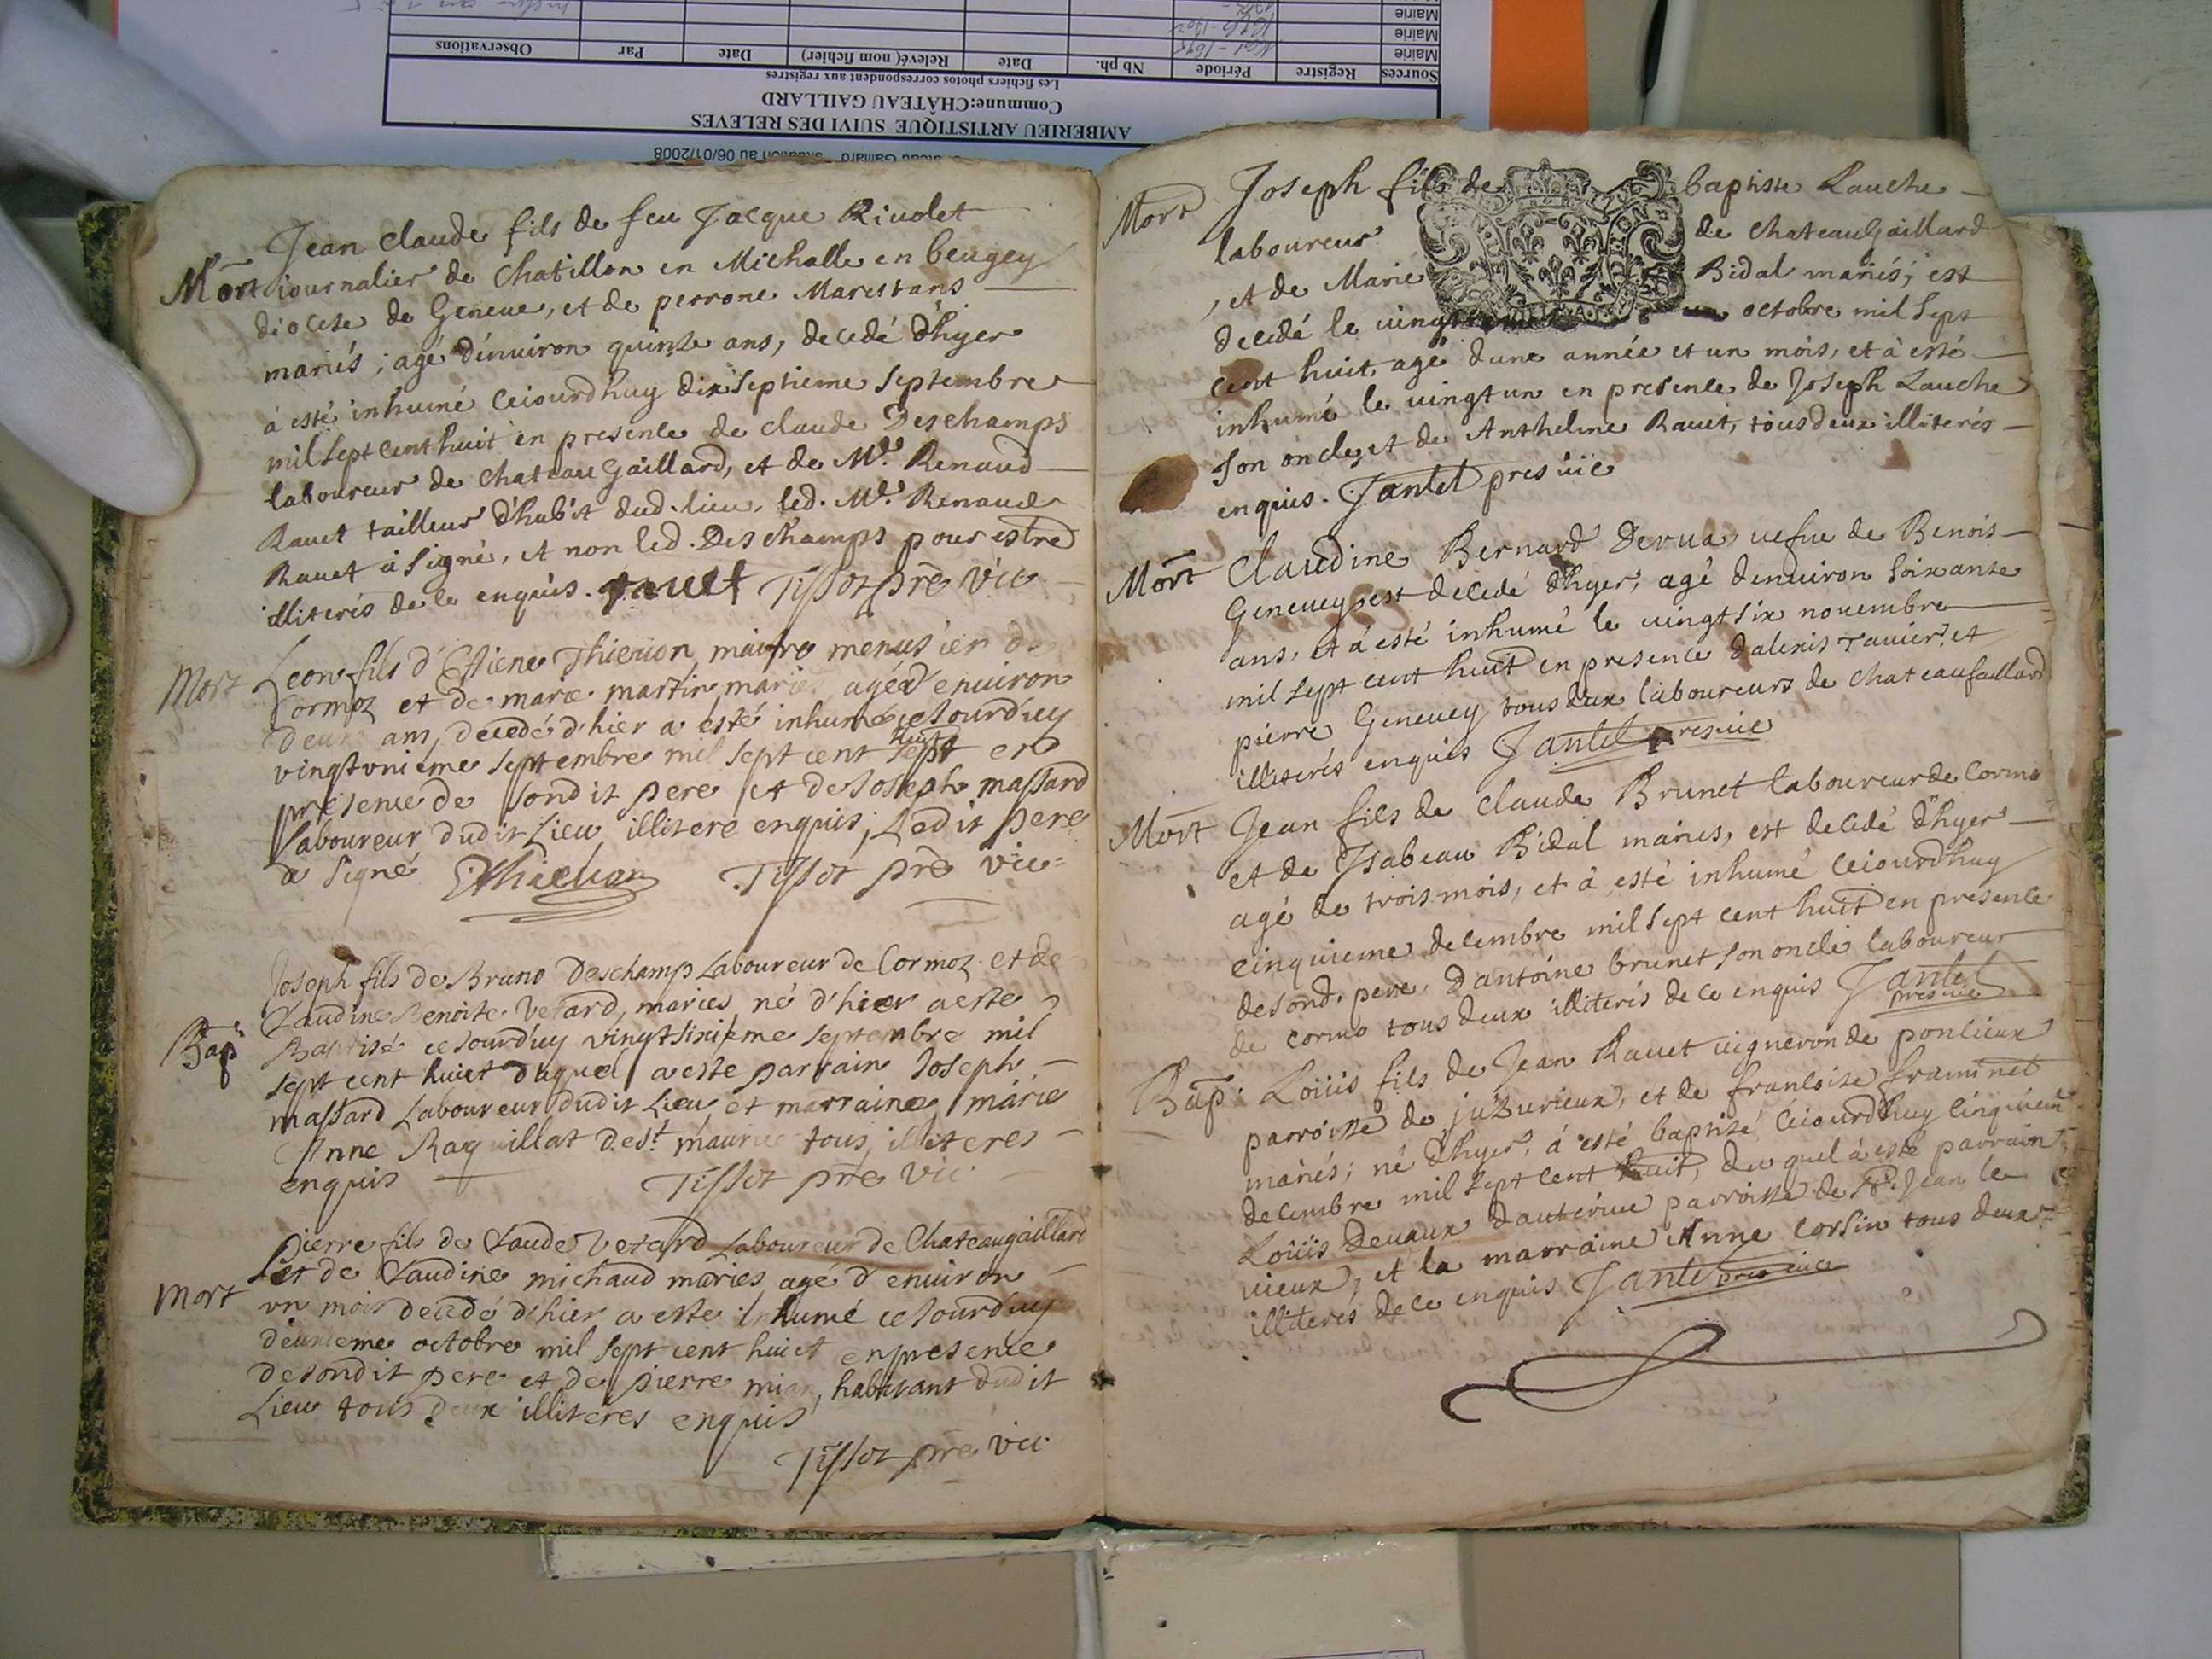 AMBERIEU ARTISTIQUE SUIVI DES RELEVES
Commune:CHÂTEAU GAILLARD
Les fichiers photos correspondent aux registres
Sources Registre Période Nb ph. Date Relevé( nom fichier) Date Par Observations
Mairie
Mairie
Mairie
Jean claude fils de feu Jacque Riuolet
Mort journalier de Chatillon en Michalle en beugey
diocese de Geneue, et de perrone Marestans
mariés; agé d'enuiron quinze ans, decedé d'hyer
à esté inhumé ceiourdhuy dix septieme septembre
mil sept cent huit en presence de claude Deschamps
laboureur de chateau Gaillard, et de Mr. Renaud
Rauet tailleur d'habit dud. lieu, led. Mr. Renaud
Rauet à signé, et non led. Deschamps pour estre
illiterés de ce enquis. rauet Tissot prê vic
Mort Leon fils d'Estiene Thieuon maitre menusier de
Cormoz et de marie martin mariés agé d'enuiron
deux ans, decedé d'hier a esté inhumé ceJourd'uy
vingtvnieme septembre mil sept cent sept en
huit
presence de sondit pere et de Joseph massard
Laboureur dudit Lieu illitere enquis, Ledit pere
a signé EThieuon Tissot prê vic
Joseph fils de Bruno Deschamp Laboureur de Cormoz et de
Claudine Benoite Vetard, maries né d'hier a este
Bap Baptisé ceJourd'uy vingtsixieme septembre mil
sept cent huict duquel a este parrain Joseph
massard Laboureur dudit Lieu et marraine marie
Anne Raquillat de St. maurice tous illiteres
enquis Tissot prê vic
Pierre fils de Claude Vetard Laboureur de Chateaugaillard
et de Claudine michaud maries, agé d'enuiron
Mort vn mois decedé d'hier a este inhumé ceJourd'uy
deuxieme octobre mil sept cent huict en presence
de sondit pere et de pierre habitant dudit
Lieu tous deux illiteres enquis
Tissot prê vic
Mort Joseph fils de baptiste Lauche
laboureur de chateauGaillard
, et de Marie Bidal mariés; est
decedé le vingt octobre mil sept
cent huit, agé d'une année et un mois, et à esté
inhumé le vingt un en presence de Joseph Lauche
son oncle, et de Anthelme Rauet, tous deux illiterés
enquis. Jantet pres vic
Mort Claudine Bernard Derua, uefue de Benois
Geneuey est decedé d'hyer, agé denuiron soixante
ans, et à esté inhumé le vingt six nouembre
mil sept cent huit en presence d'alexis rauier et
pierre Geneuey tous deux laboureurs de chateauGaillard
illiterés enquis Jantet pres vic
Mort Jean fils de claude Brunet laboureur de Cormo
et de Jsabeau Bidal mariés, est decedé d'hyer
agé de trois mois, et à esté inhumé ceiourdhuy
cinquieme decembre mil sept cent huit en presence
de sond. pere, d'antoine brunet son oncle laboureur
de cormo tous deux illiterés de ce enquis Jantet
pres vic
Bap: Loüis fils de Jean Rauet vigneron de ponlieux
parroisse de juzurieux, et de francoise framinet
mariés; né d'hyer, à esté baptisé ceiourdhuy cinquieme
decembre mil sept cent huit, du quel à esté parrain
Loüis Deuaux d'auterive parroisse de St. Jean le
vieux, et la marraine Anne Corsin tous deux
illiterés de ce enquis Jantet pres vic